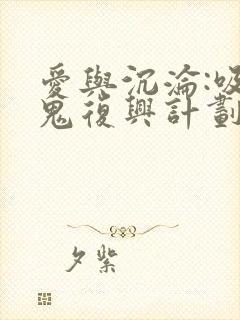 愛與沉淪:吸
鬼復興計劃
夕紫